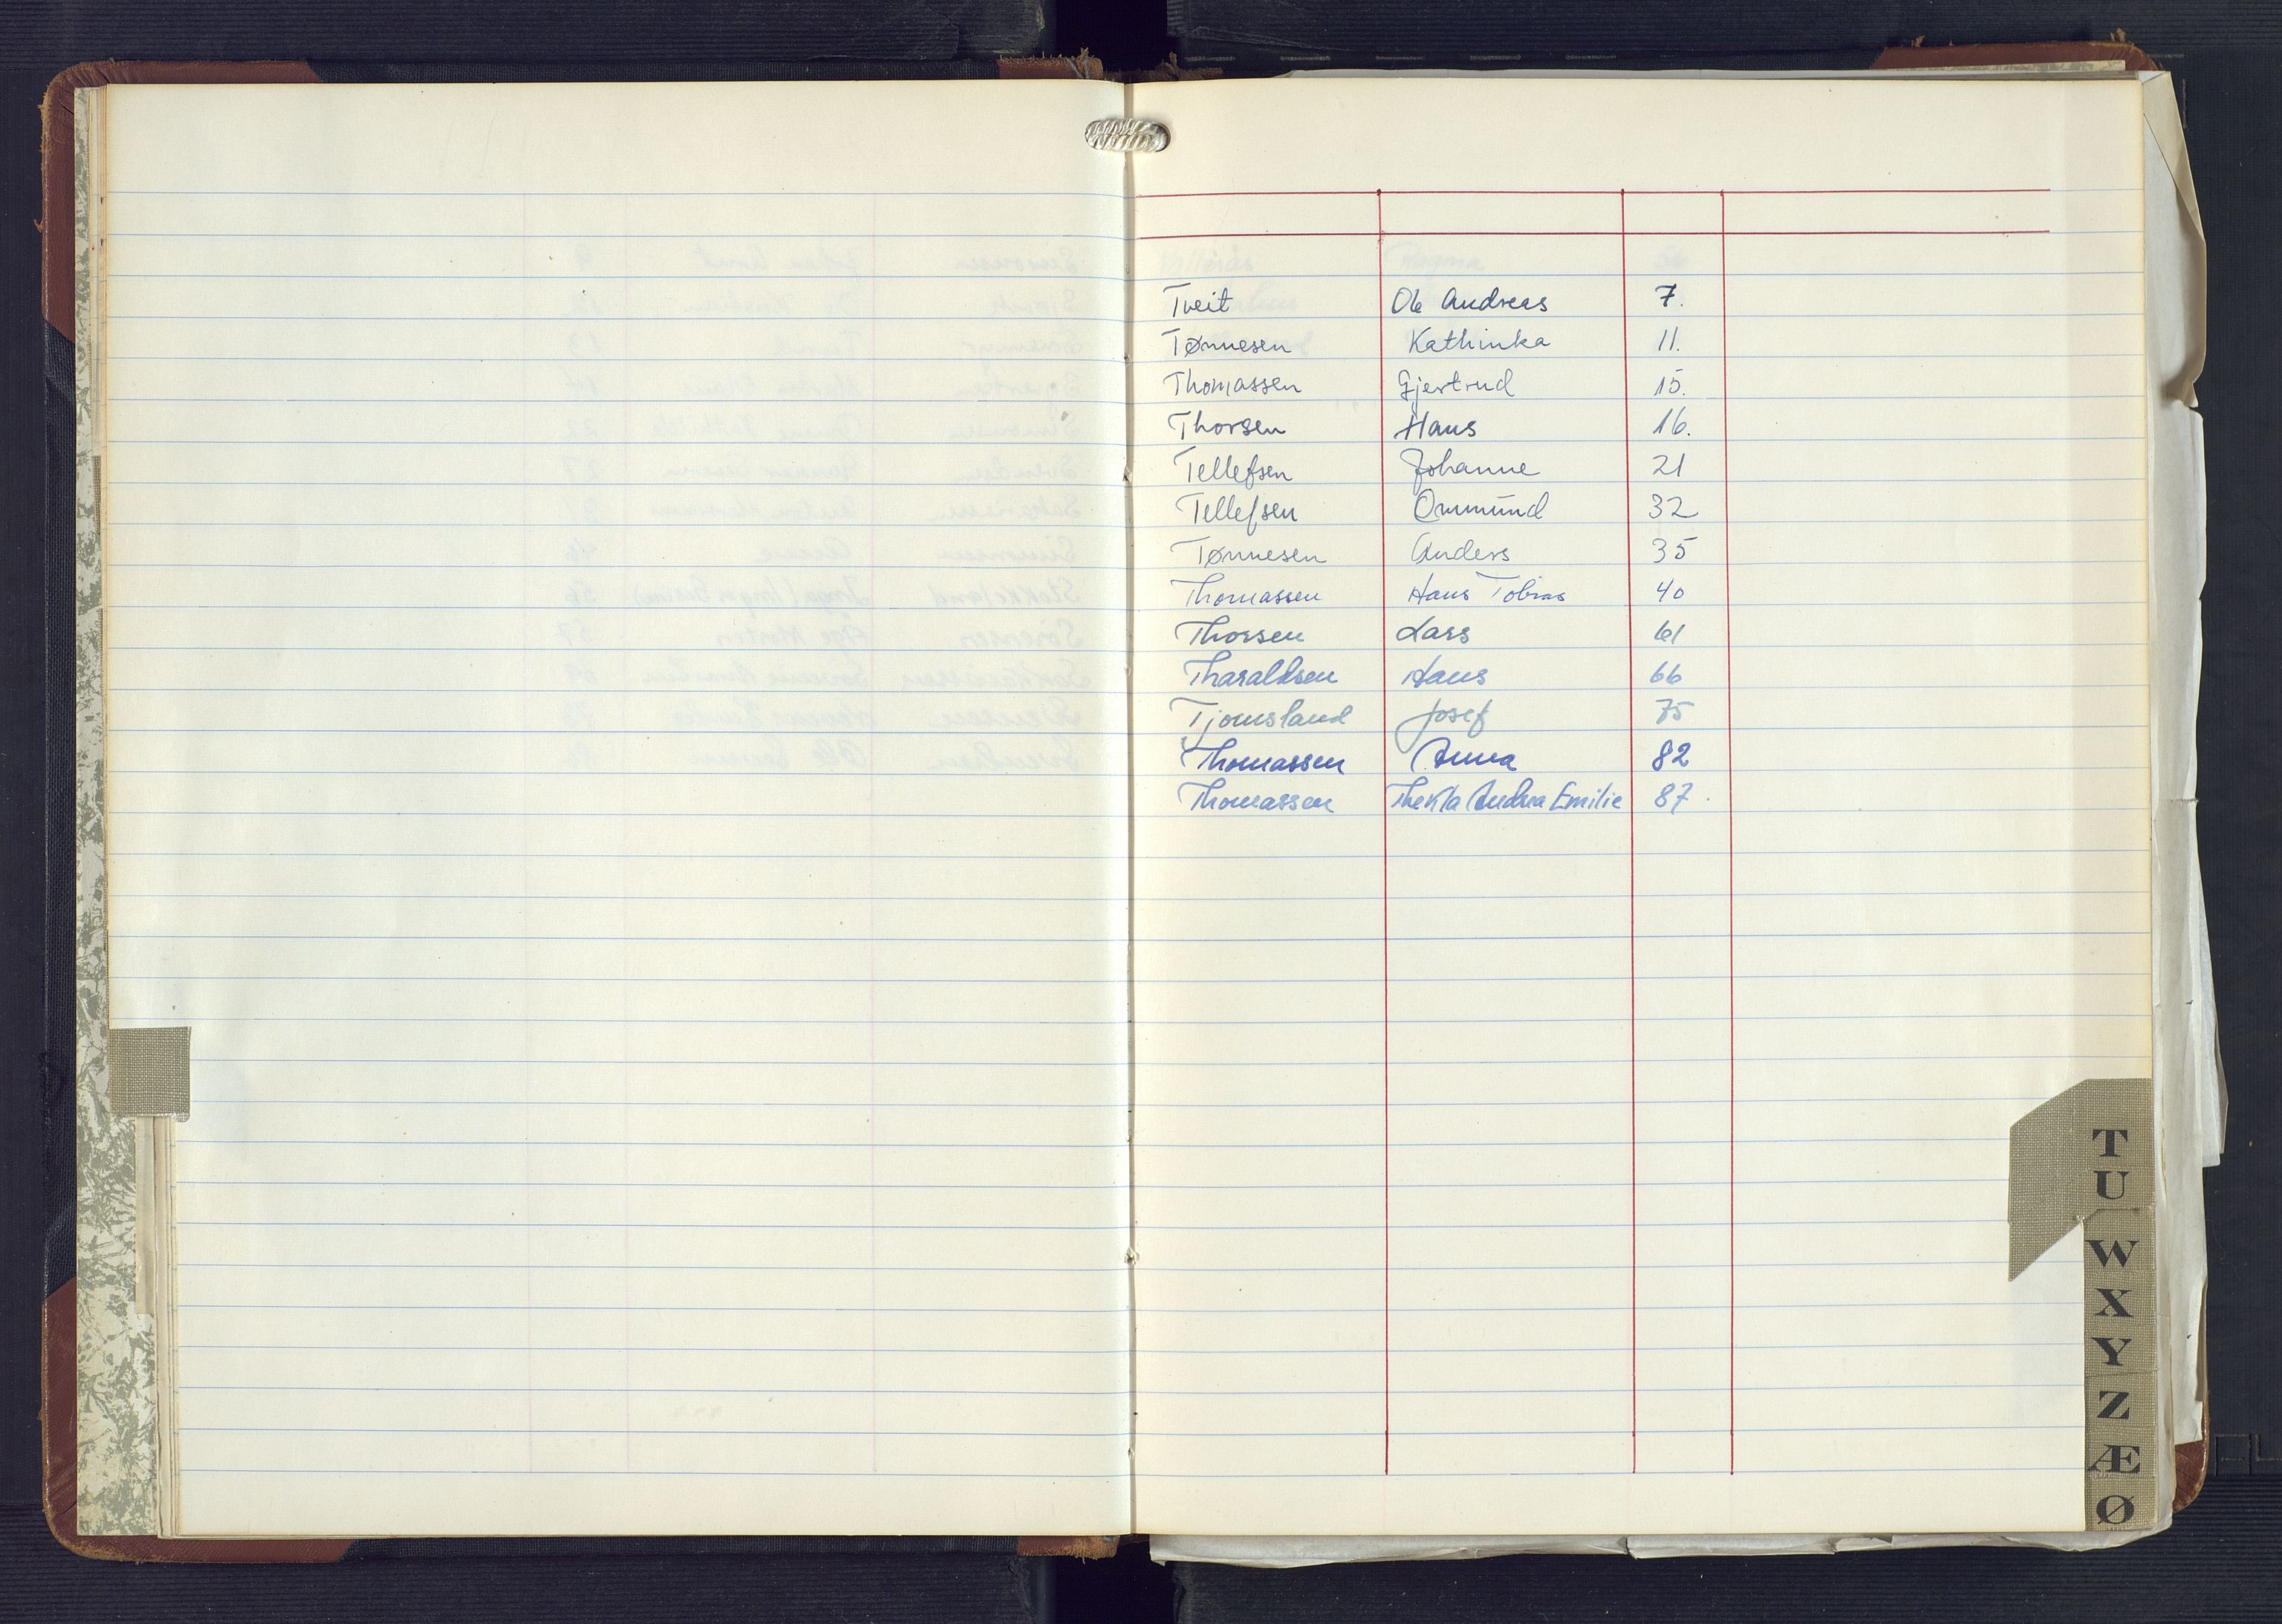 Tveit Ole Andreas 7.
Tønnesen Kathinka 11.
Thomassen Gjertrud 15.
Thorsen Hans 16.
Tellefsen Johanne 21
Tellefsen Ommund 32
Tønnesen Anders 35
Thomassen Hans Tobias 40
Thorsen Lars 61
Tharaldsen Hans 66
Tjomsland Josef 75
Thomassen Anna 82
Thomassen Thekla Andrea Emilie 87.
T
U
W
X
Y
Z
Æ
Ø